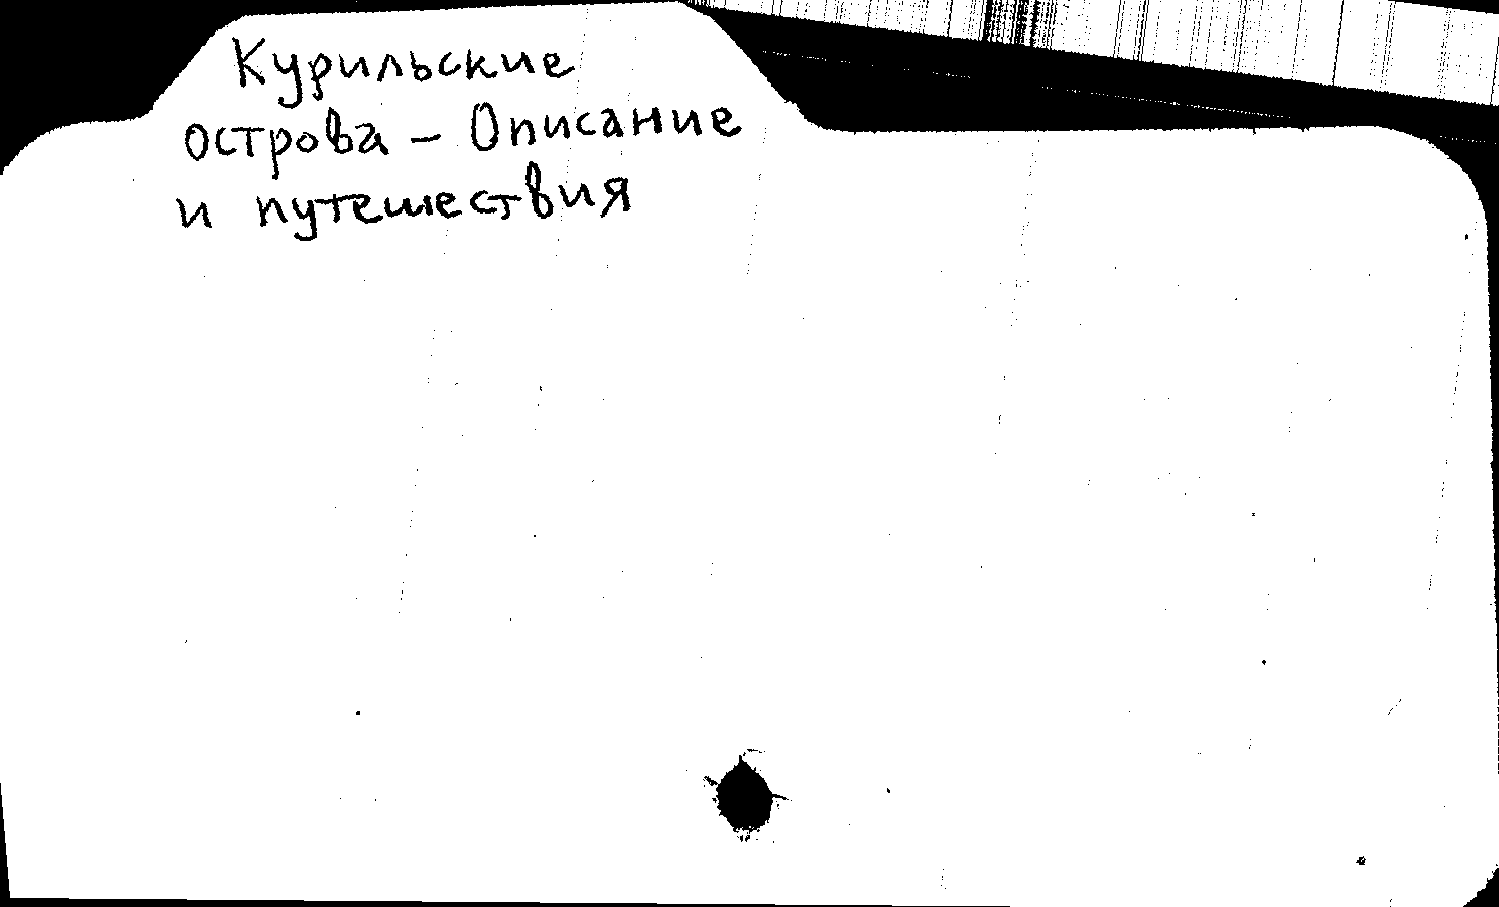 Курильские
острова – Описание
и путешествия